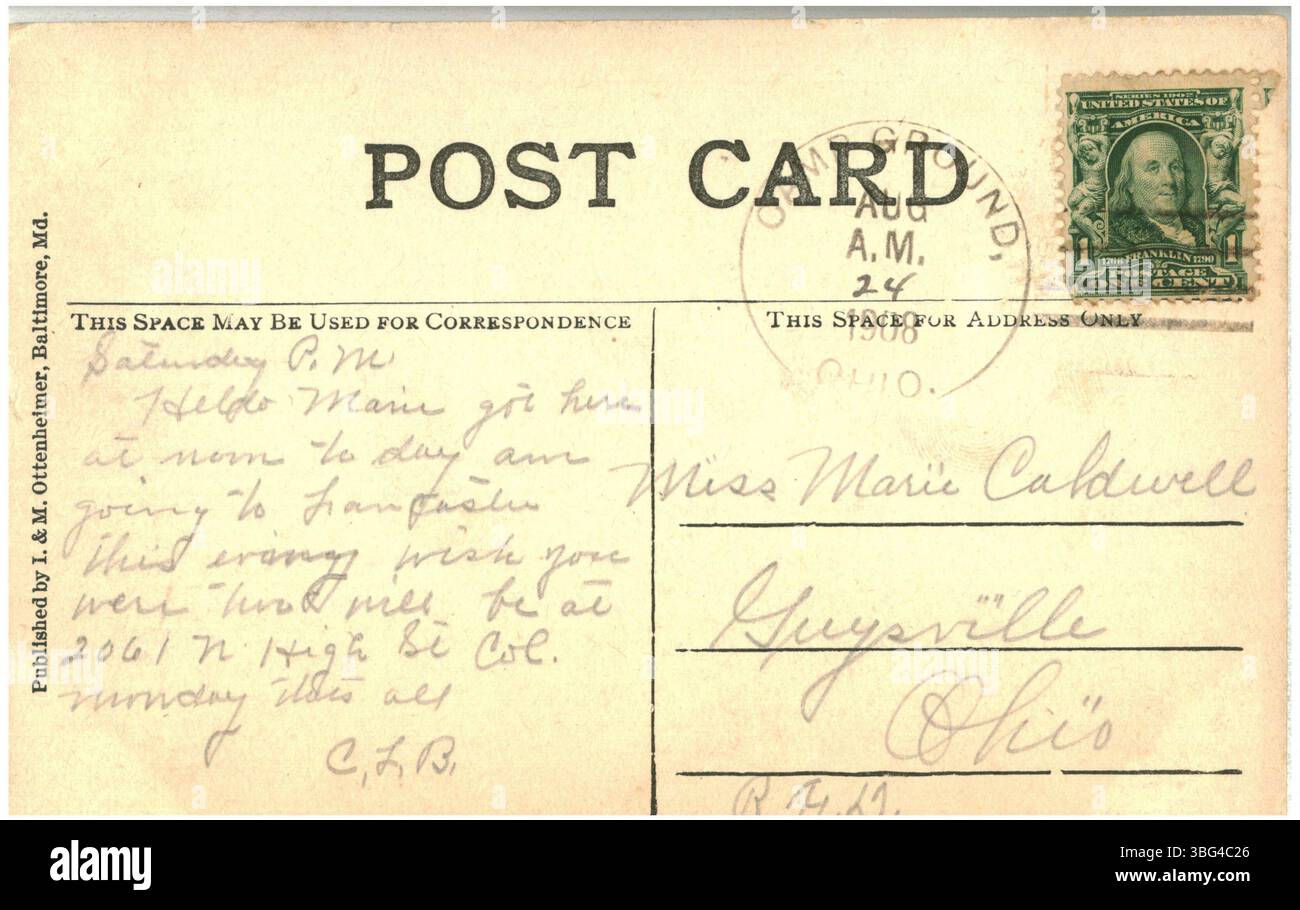 POST CARD
CAMP GROUND,
AUG
A.M.
24
1908
OHIO.
SERIES 1902
UNITED STATES OF
AMERICA
1 1
1706 FRANKLIN 1790
POSTAGE
ONE CENT
Published by I. & M. Ottenheimer, Baltimore, Md.
THIS SPACE MAY BE USED FOR CORRESPONDENCE
Saturday P. M
Hello Marie got here
at noon to day am
going to Lancaster
this wish you
were will be at
2061 N High St Col.
monday this all
C, L, B,
THIS SPACE FOR ADDRESS ONLY
Miss Marie Caldwell
Guysville
Ohio
alamy
Image ID: 3BG4C26
www.alamy.com